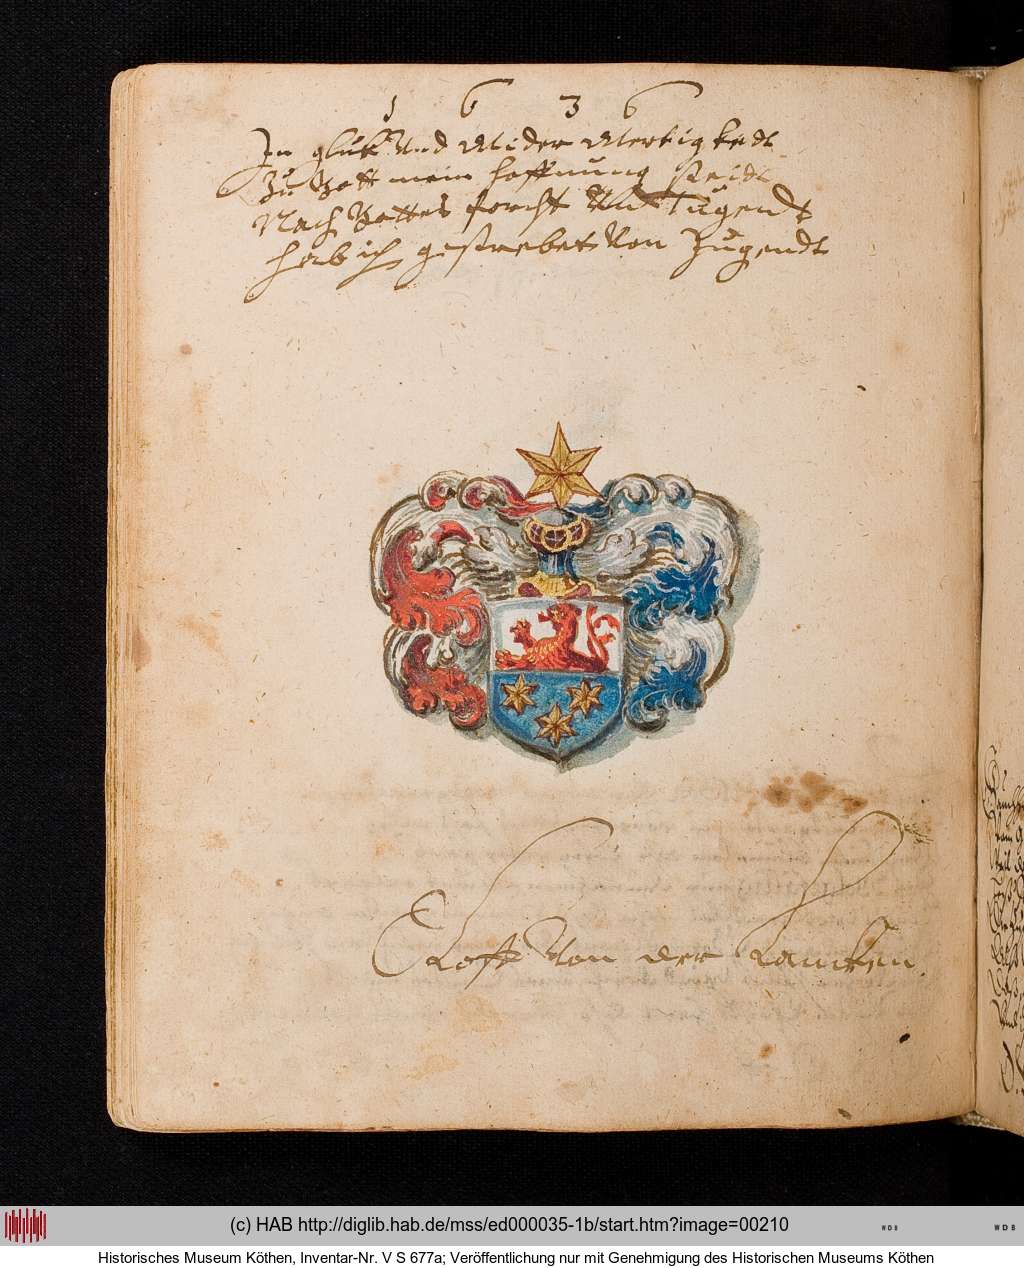 1 6 3 6
In glück Vnd Wider Wertigkedt
Zu Gott mein hoffnung steidt
Nach Gottes forcht Vnd Tugendt
hab ich gestrebet Von Jugendt
Roloff Von der Lancken
(c) HAB http://diglib.hab.de/mss/ed000035-1b/start.htm?image=00210
WDB
WDB
Historisches Museum Köthen, Inventar-Nr. V S 677a; Veröffentlichung nur mit Genehmigung des Historischen Museums Köthen